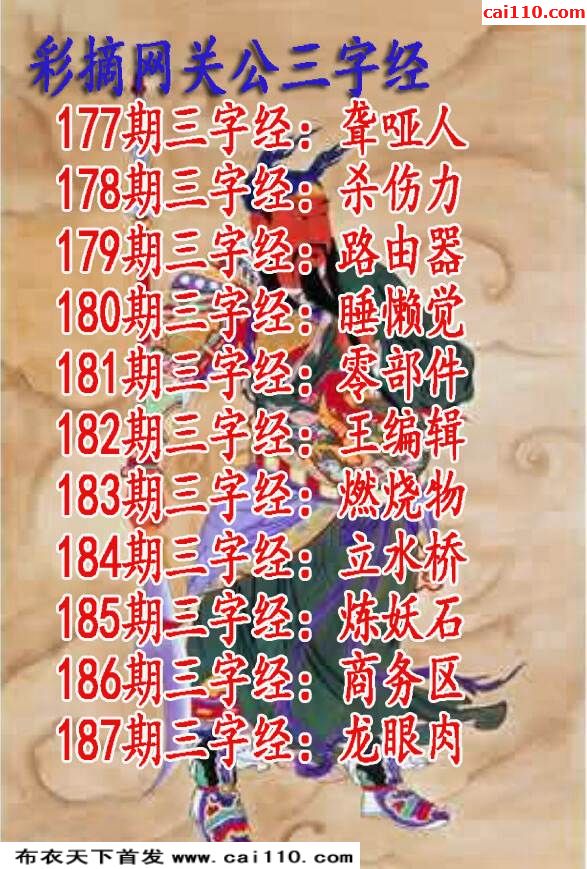 cai110.com
彩摘网关公三字经
177期三字经：聋哑人
178期三字经：杀伤力
179期三字经：路由器
180期三字经：睡懒觉
181期三字经：零部件
182期三字经：王编辑
183期三字经：燃烧物
184期三字经：立水桥
185期三字经：炼妖石
186期三字经：商务区
187期三字经：龙眼肉
布衣天下首发 www.cai110.com